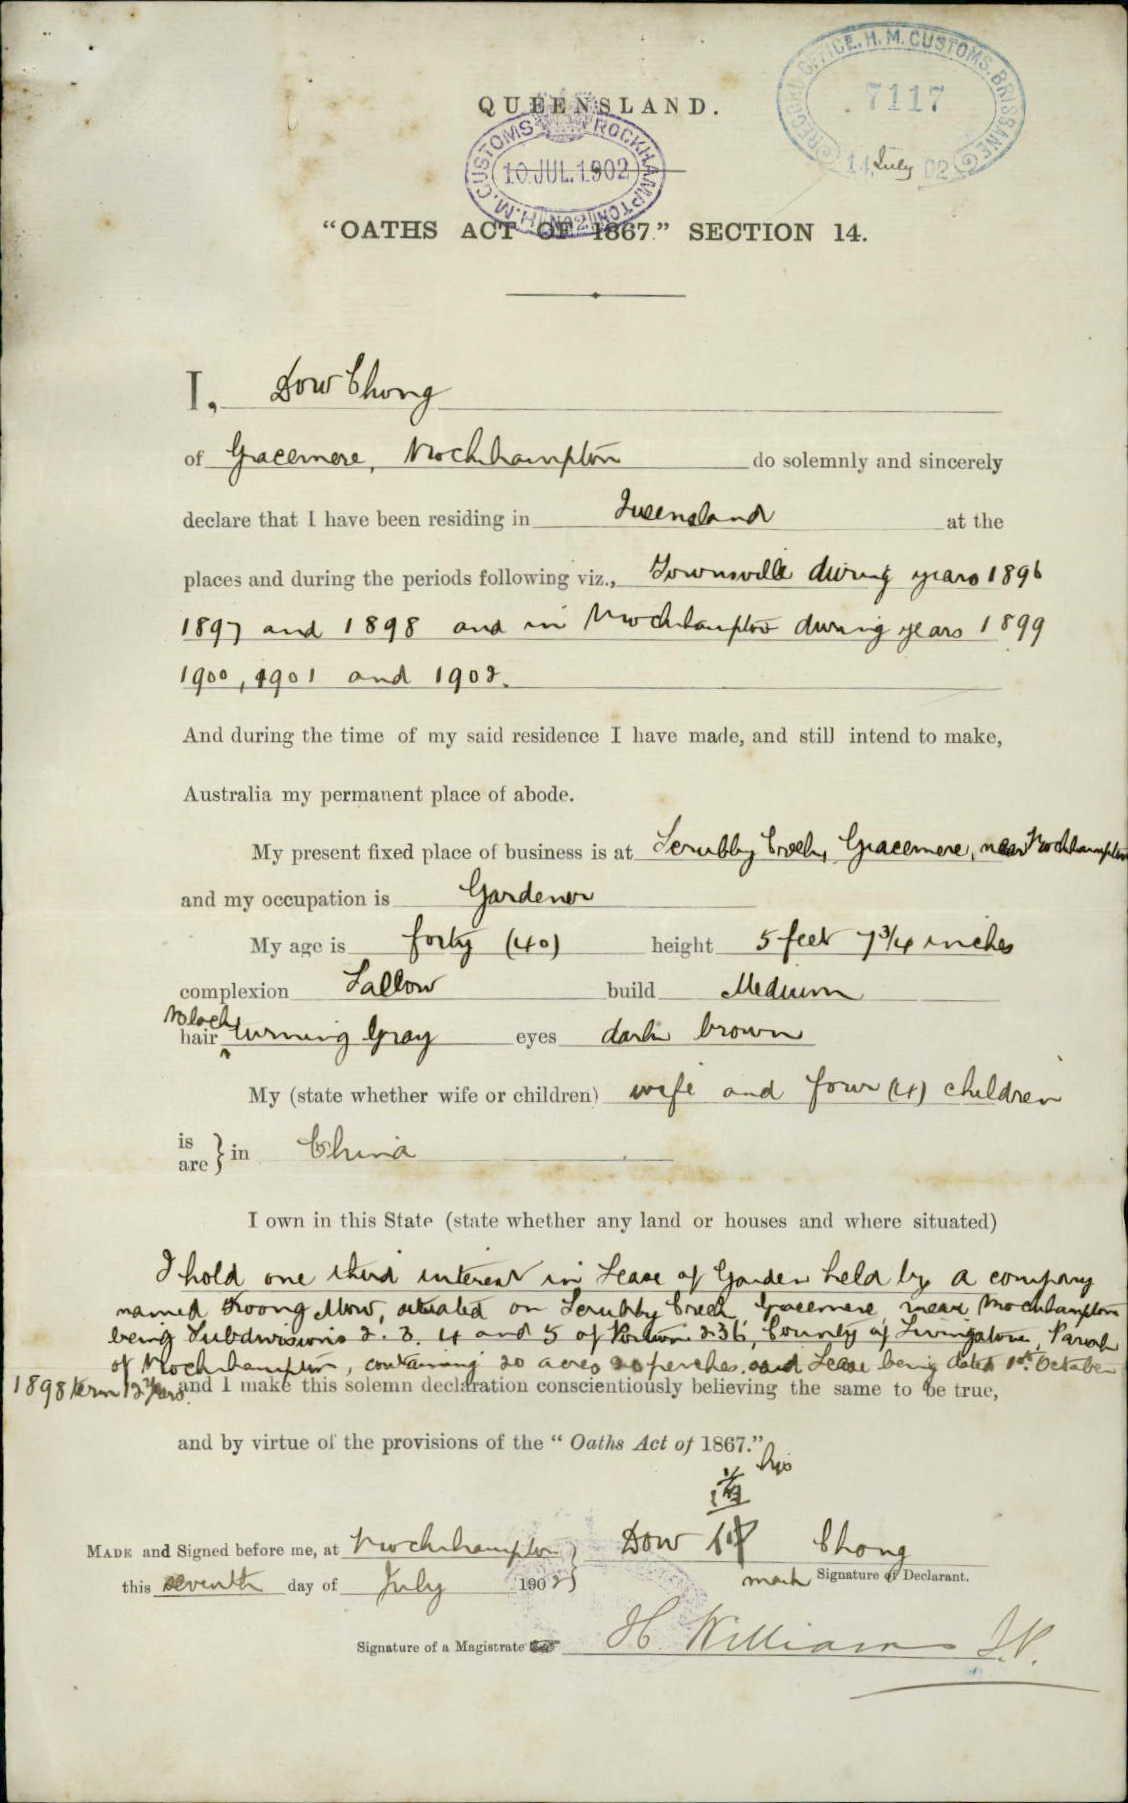 RECORD OFFICE. H. M. CUSTOMS. BRISBANE
7117
14 July 02
QUEENSLAND.
H.M. CUSTOMS ROCKHAMPTON
10 JUL. 1902
No 2
"OATHS ACT OF 1867." SECTION 14.
I, Dow Chong
of Gracemere, Rockhampton do solemnly and sincerely
declare that I have been residing in Queensland at the
places and during the periods following viz., Townsville during years 1896
1897 and 1898 and in Rockhampton during years 1899
1900, 1901 and 1902.
And during the time of my said residence I have made, and still intend to make,
Australia my permanent place of abode.
My present fixed place of business is at Scrubby Creek, Gracemere, near Rockhampton
and my occupation is Gardener
My age is forty (40) height 5 feet 7 3/4 inches
complexion Sallow build Medium
hair Black turning Gray eyes dark brown
My (state whether wife or children) wife and four (4) children
is
are } in China
I own in this State (state whether any land or houses and where situated)
I hold one third interest in Lease of Garden held by a company
named Koong Mow, situated on Scrubby Creek Gracemere near Rockhampton
being Subdivisions 2. 3. 4 and 5 of Portion 236, County of Livingstone, Parish
of Rockhampton, containing 20 acres 20 perches, said Lease being dated 1st. October
1898 term 12 years.
and I make this solemn declaration conscientiously believing the same to be true,
and by virtue of the provisions of the "Oaths Act of 1867."
his
道
MADE and Signed before me, at Rockhampton } Dow 仲 Chong
this seventh day of July 1902 } mark Signature of Declarant.
Signature of a Magistrate H. Williams J.P.